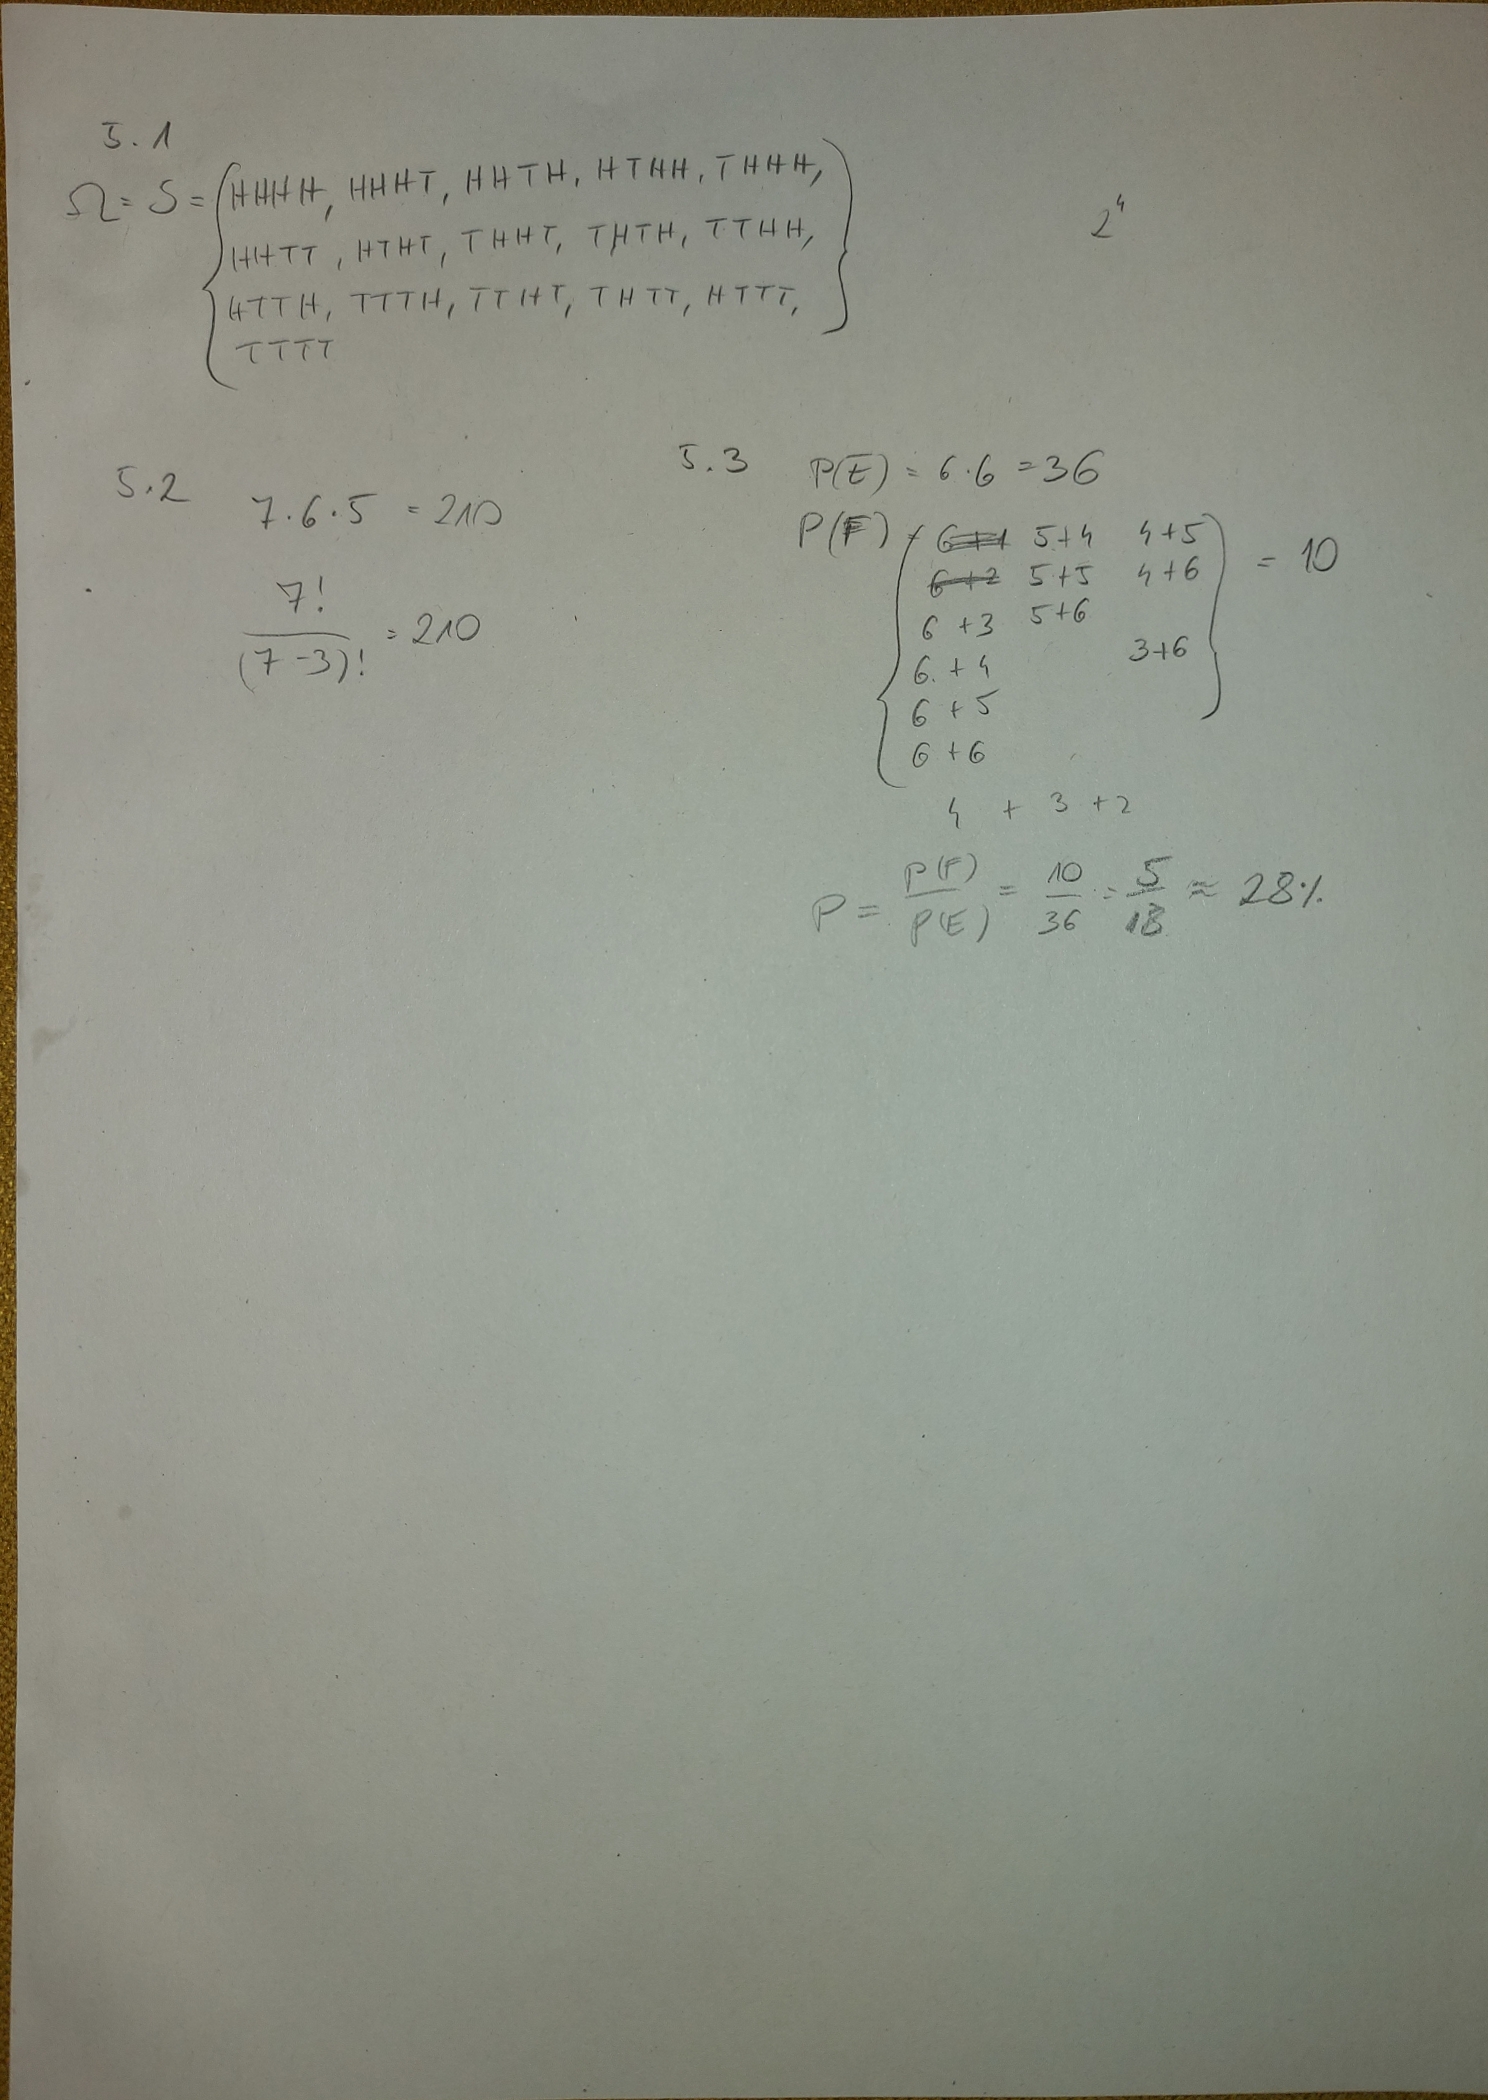 5.1
Ω = S = {HHHH, HHHT, HHTH, HTHH, THHH,
HHTT, HTHT, THHT, THTH, TTHH,
HTTH, TTTH, TTHT, THTT, HTTT,
TTTT}
2⁴
5.2
7·6·5 = 210
7!
(7-3)! = 210
5.3 P(E) = 6·6 = 36
P(F) = { 6+1 5+4 4+5
6+2 5+5 4+6 } = 10
6+3 5+6
6+4 3+6
6+5
6+6
4 + 3 + 2
P = P(F)/P(E) = 10/36 = 5/18 ≈ 28%